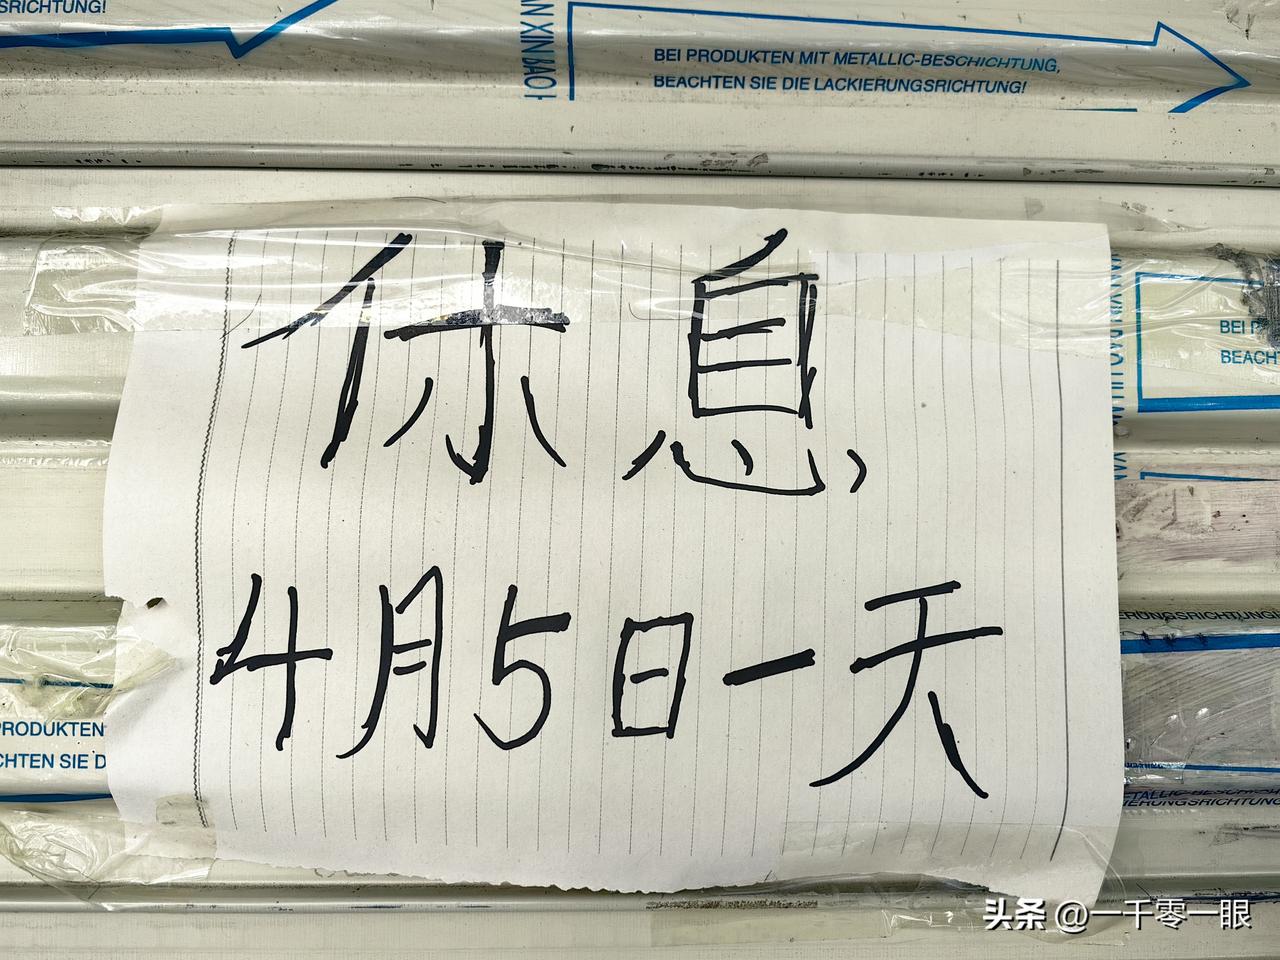 SRICHTUNG!
BEI PRODUKTEN MIT METALLIC-BESCHICHTUNG,
BEACHTEN SIE DIE LACKIERUNGSRICHTUNG!
休息
4月5日一天
BEI
BEACHT
ERUNGSRICHTUNG!
PRODUKTEN
CHTEN SIE D
TALLIC-BESCHICH
IERUNGSRICHTUNG
头条 @一千零一眼